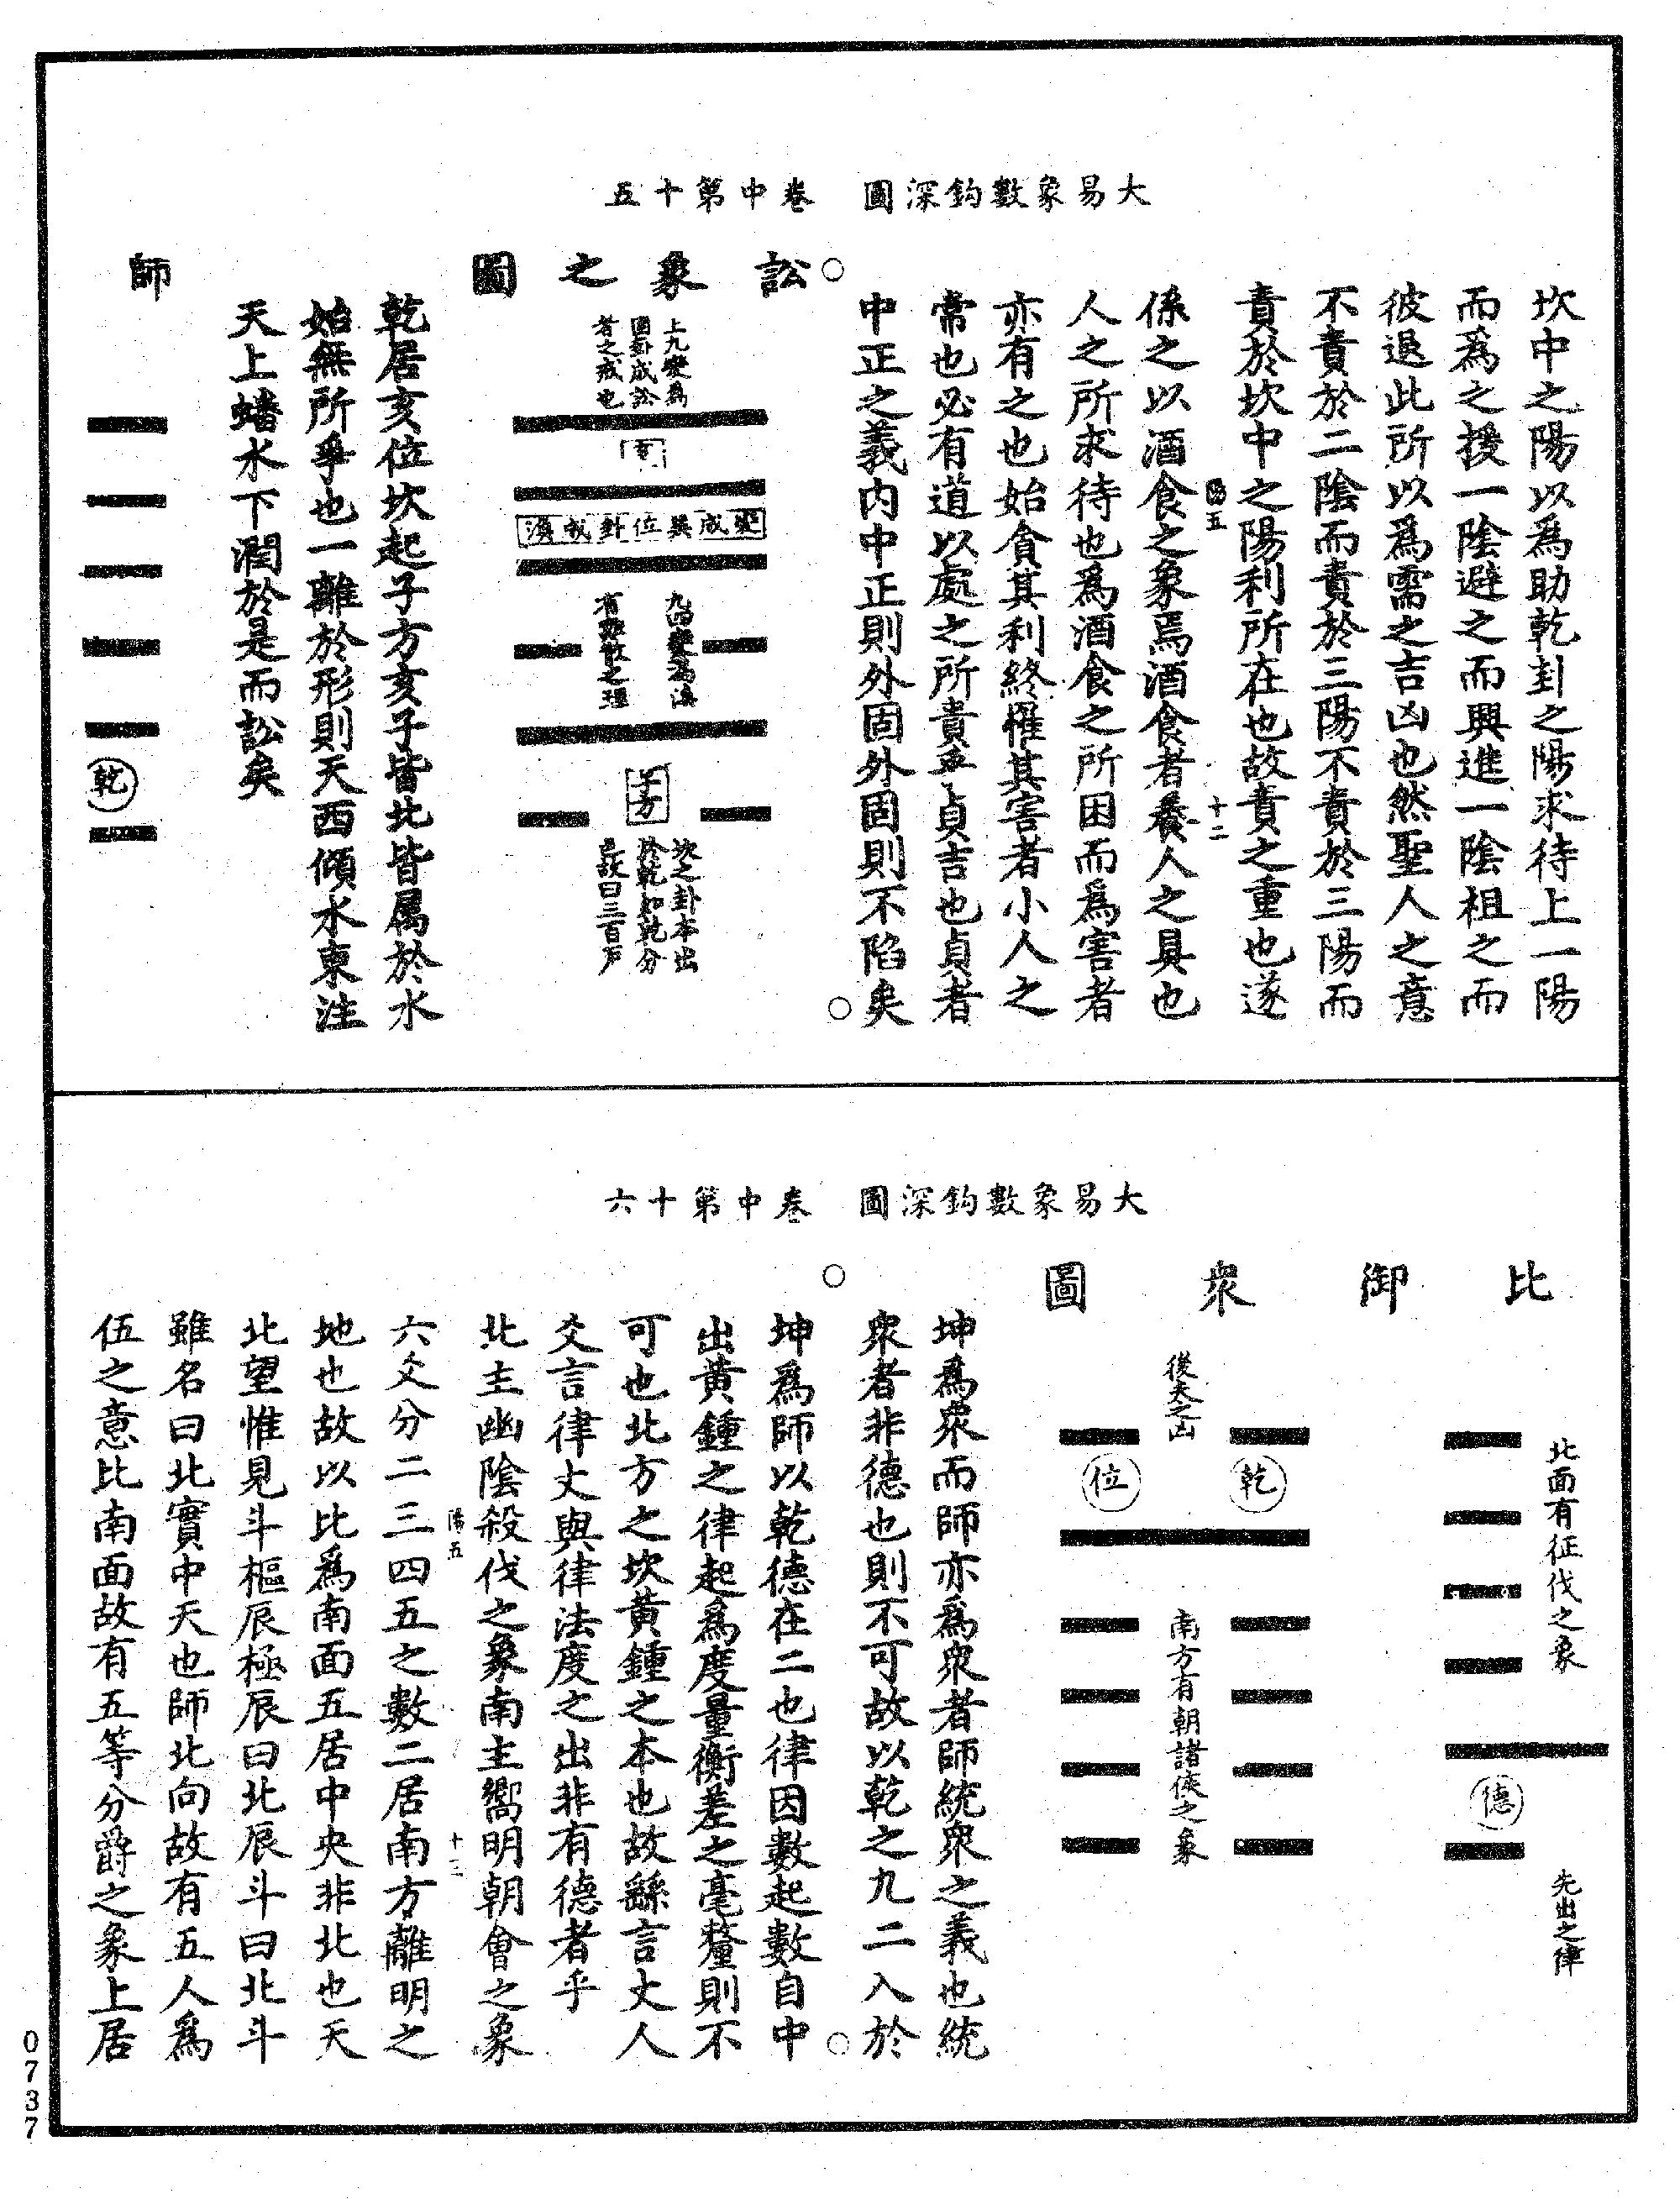 大易象數鈎深圖　卷中第十五
坎中之陽以爲助乾卦之陽求待上一陽
而爲之援一陰避之而興進一陰柤之而
彼退此所以爲需之吉凶也然聖人之意
不責於二陰而責於三陽不責於三陽而
責於坎中之陽利所在也故責之重也遂
陽五　十二
係之以酒食之象焉酒食者養人之具也
人之所求待也爲酒食之所困而爲害者
亦有之也始貪其利終罹其害者小人之
常也必有道以處之所貴乎貞吉也貞者
中正之義内中正則外固外固則不陷矣
訟象之圖
上九變爲
困卦成訟
者之戒也
亥
變成巽位卦成渙
九四變爲渙
有渙散之理
子方
坎之卦本出
於乾如乾分
邑故曰三百户
乾居亥位坎起子方亥子皆北皆属於水
始無所爭也一離於形則天西傾水東注
天上蟠水下潤於是而訟矣
師
乾
大易象數鈎深圖　卷中第十六
比御衆圖
北面有征伐之象
德
先出之律
乾
後夫之凶
南方有朝諸侯之象
位
坤爲衆而師亦爲衆者師統衆之義也統
衆者非德也則不可故以乾之九二入於
坤爲師以乾德在二也律因數起數自中
出黄鍾之律起爲度量衡差之毫釐則不
可也北方之坎黄鍾之本也故繇言丈人
爻言律丈與律法度之出非有德者乎
北主幽陰殺伐之象南主嚮明朝會之象
陽五　十三
六爻分二三四五之數二居南方離明之
地也故以比爲南面五居中央非北也天
北望惟見斗樞辰極辰曰北辰斗曰北斗
雖名曰北實中天也師北向故有五人爲
伍之意比南面故有五等分爵之象上居
0737